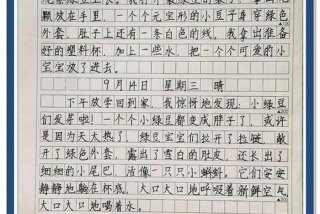 颗放在手里,一个个元宝形的小豆子身穿绿色
外套,肚子上还有一条白色的线。我拿出准备
好的塑料杯,加上一些水,把一个个可爱的小
宝宝放了进去。
9月14日 星期三 晴
下午放学回到家,我惊讶地发现:小绿豆
们发芽啦!一个个小绿豆都变成胖子了,或许
是因为天太热了,绿豆宝宝们拉开了拉链,敞
开了绿色外套,露出了雪白的肚皮,还长出了
细细的小尾巴,活像一只只小蝌蚪。它们安安
静静地躺在杯底,大口大口地呼吸着新鲜空气
大口大口地喝着水。